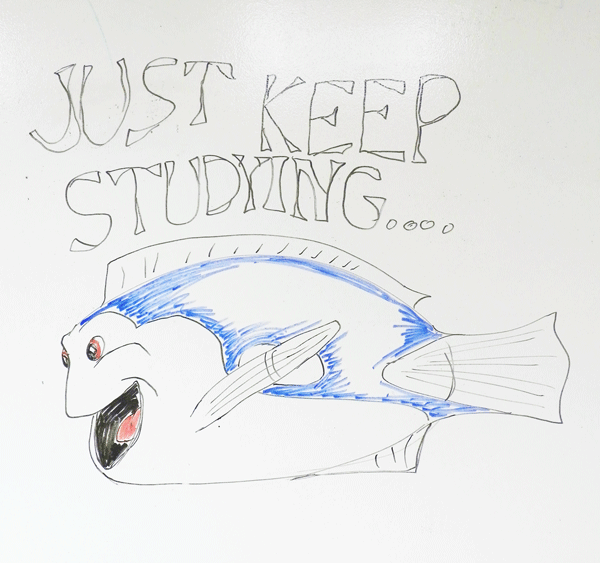 JUST KEEP
STUDYING....